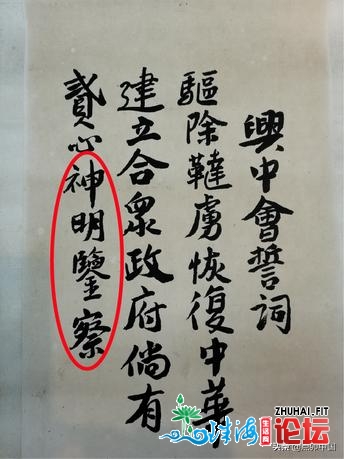 興中會誓詞
驅除韃虜恢復中華
建立合衆政府倘有
貳心神明鑒察
ZHUHAI.FIT
珠海
生活圈
论坛
头条@鹿鸣中国